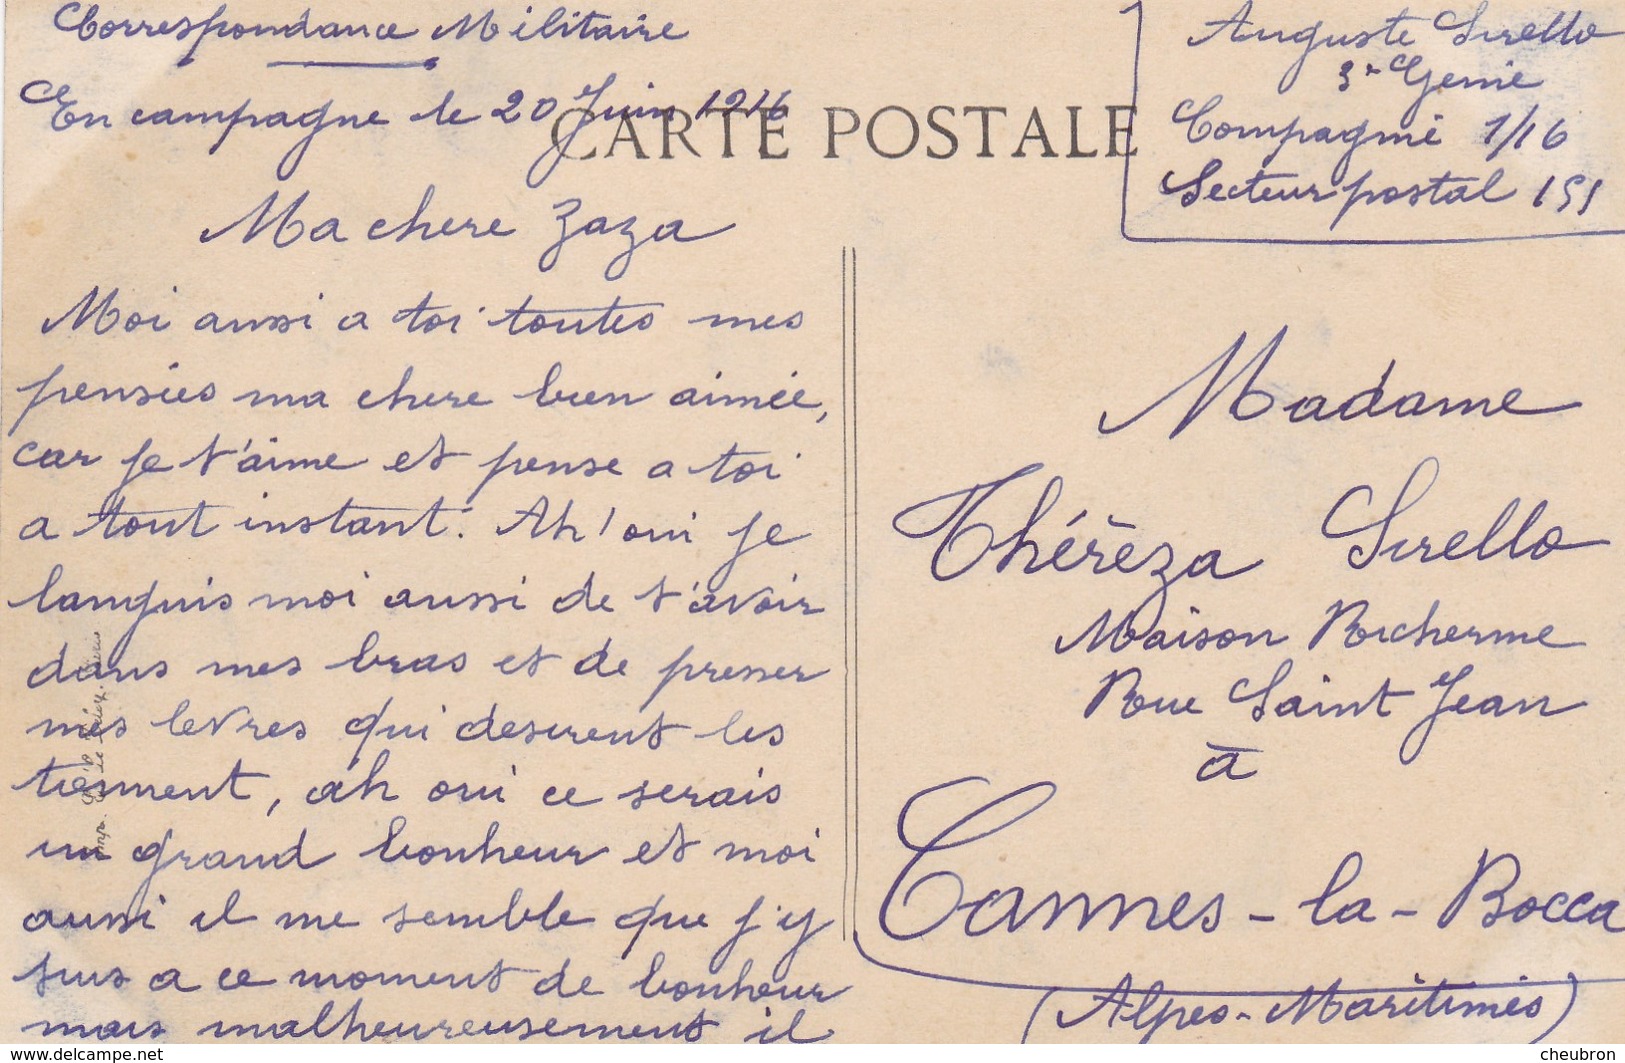 Correspondance Militaire
En campagne le 20 Juin 1916
CARTE POSTALE
Ma chere Zaza
Moi aussi a toi toutes mes
pensées ma chere bien aimée,
car je t'aime et pense a toi
a tout instant. Ah! oui je
languis moi aussi de t'avoir
dans mes bras et de presser
mes levres qui desirent les
tiennent, ah oui ce serais
un grand bonheur et moi
aussi il me semble que j'y
suis a ce moment de bonheur
mais malheureusement il
Auguste Sirello
3e Genie
Compagnie 1/16
Secteur postal 151
Madame
Thérèza Sirello
Maison Richerme
Rue Saint Jean
à
Cannes-la-Bocca
(Alpes-Maritimes)
Imp.
www.delcampe.net
cheubron